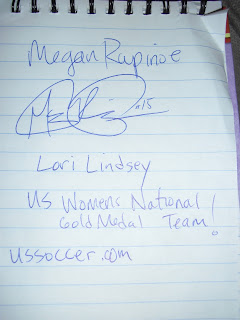 Megan Rapinoe
#15
Lori Lindsey
US Womens National
Gold Medal Team!
ussoccer.com